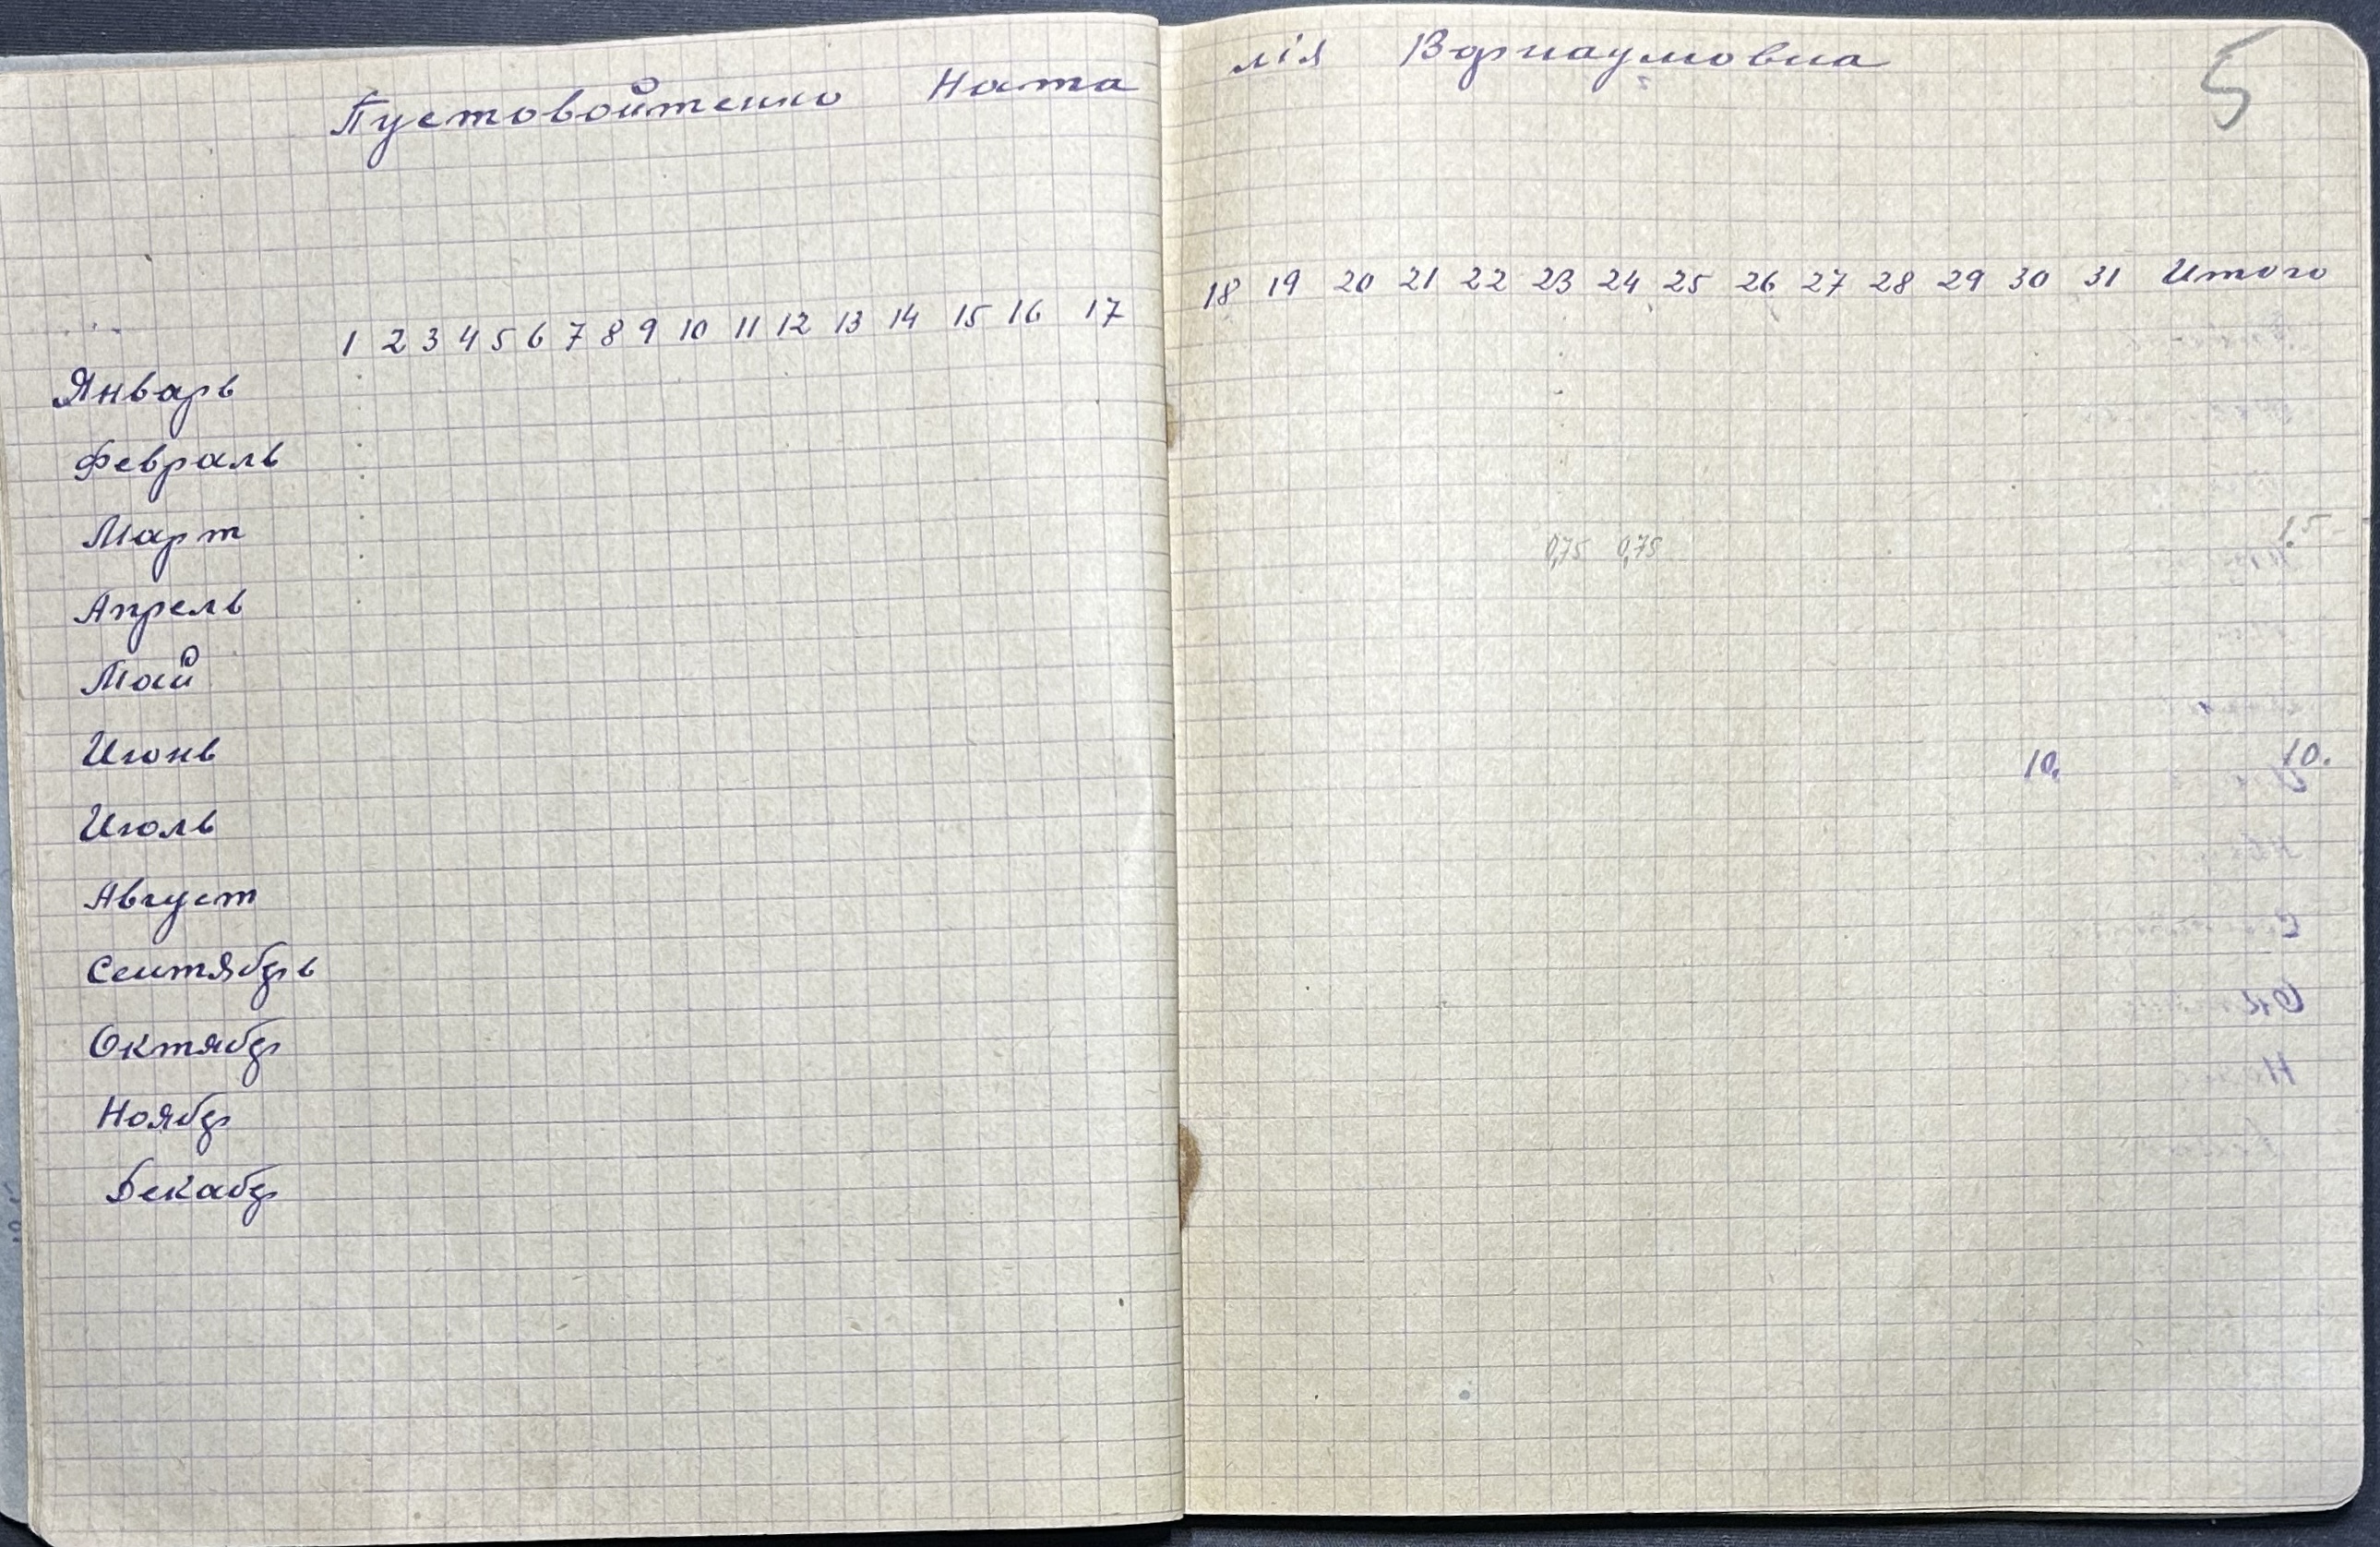 Пустовойтенко Ната
лія
5
1 2 3 4 5 6 7 8 9 10 11 12 13 14 15 16 17
18 19 20 21 22 23 24 25 26 27 28 29 30 31 Итого
Январь
Февраль
Март 0,75 0,75 1.5
Апрель
Май
Июнь 10. 10.
Июль
Август
Сентябрь
Октябр
Ноябр
Декабр